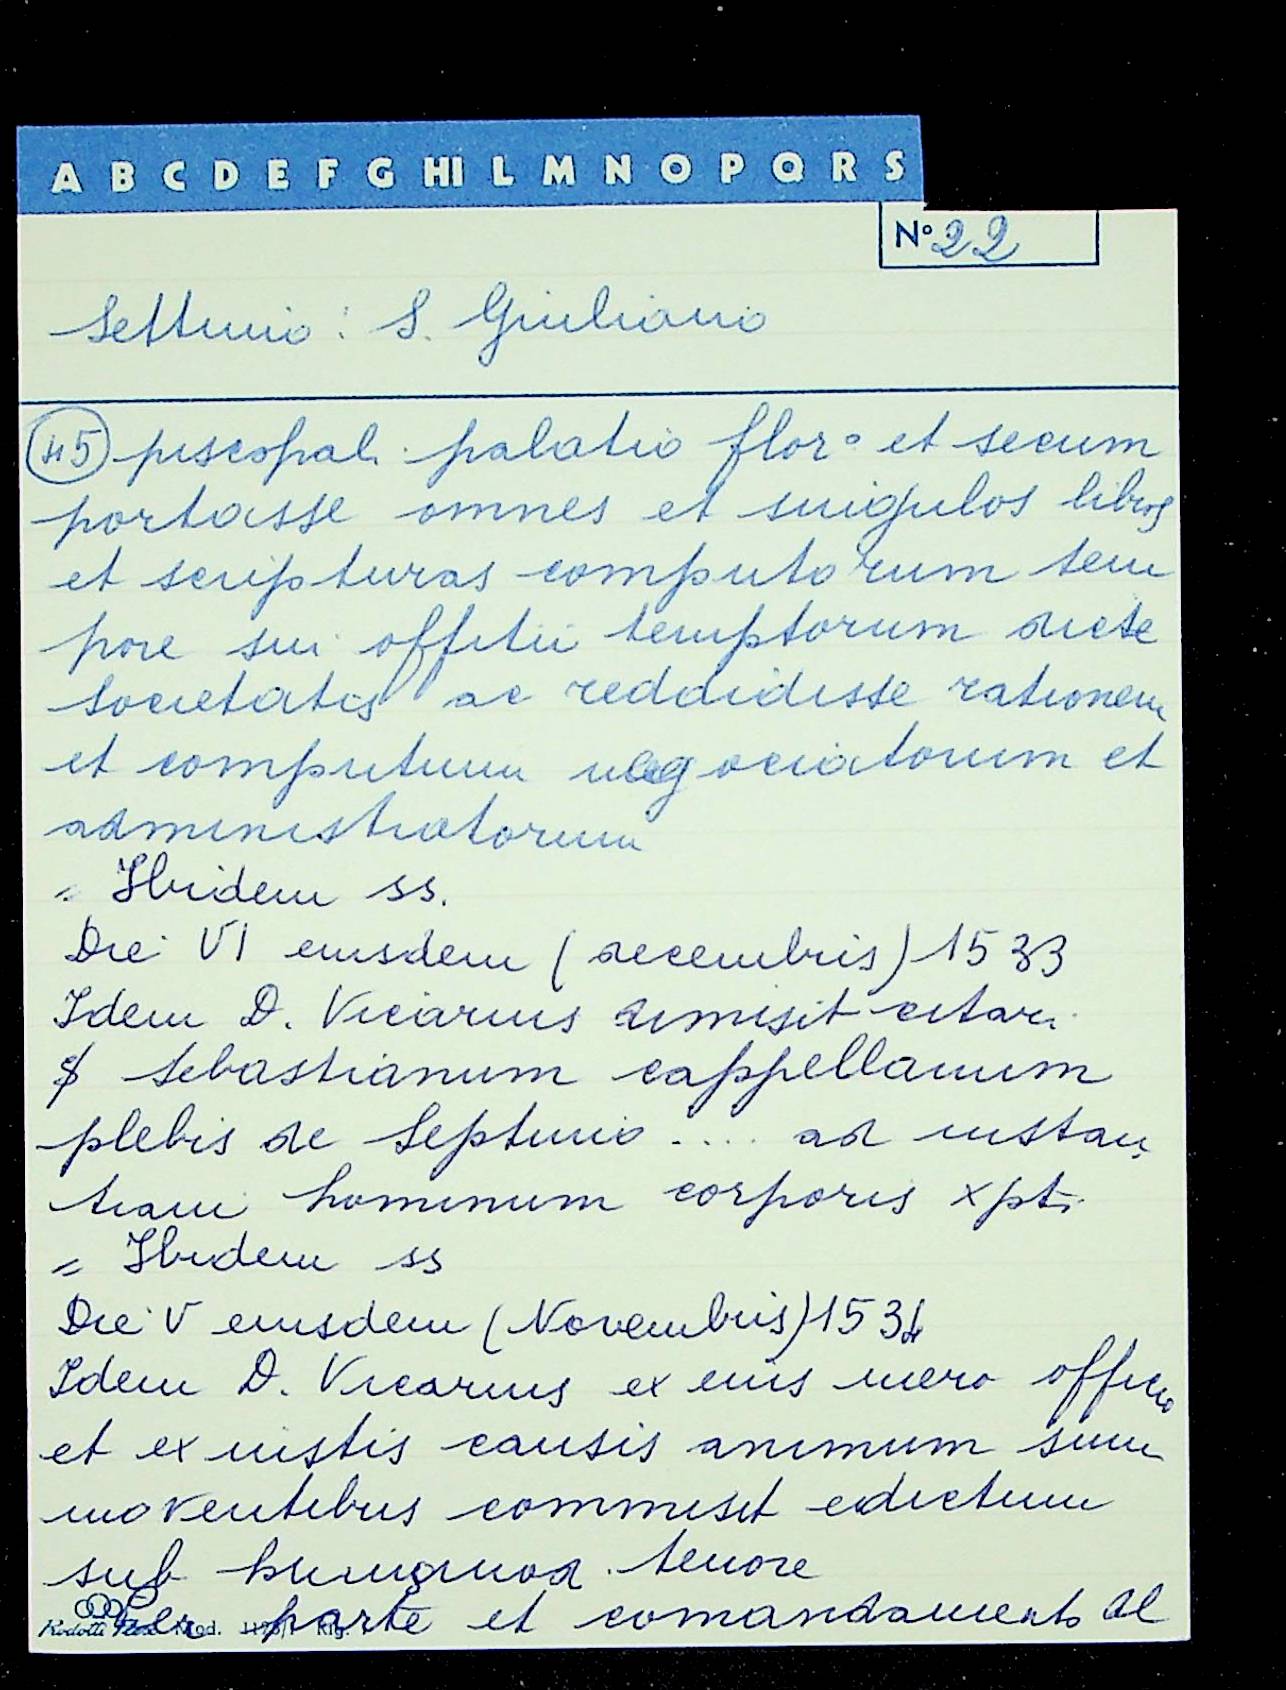 A B C D E F G HI L M N O P Q R S
N° 22
Settimo : S. Giuliano
45 piscopal. palatio flor° et secum
portasse omnes et singulos libros
et scripturas computorum tem
pore sui offitii temptorum dicte
societatis ac reddidisse rationem
et computum negociatorum et
administratorum
= Ibidem ss.
Die VI eiusdem (decembris) 1533
Idem D. Vicarius dimisit citari
S Sebastianum cappellanum
plebis de Septimo .... ad instan
tiam hominum corporis xpti
= Ibidem ss
Die V eiusdem (Novembris) 1534
Idem D. Vicarius ex eius mero officio
et ex iustis causis animum suum
moventibus commisit edictum
sub huiusmod. tenore
Per parte et comandamento del